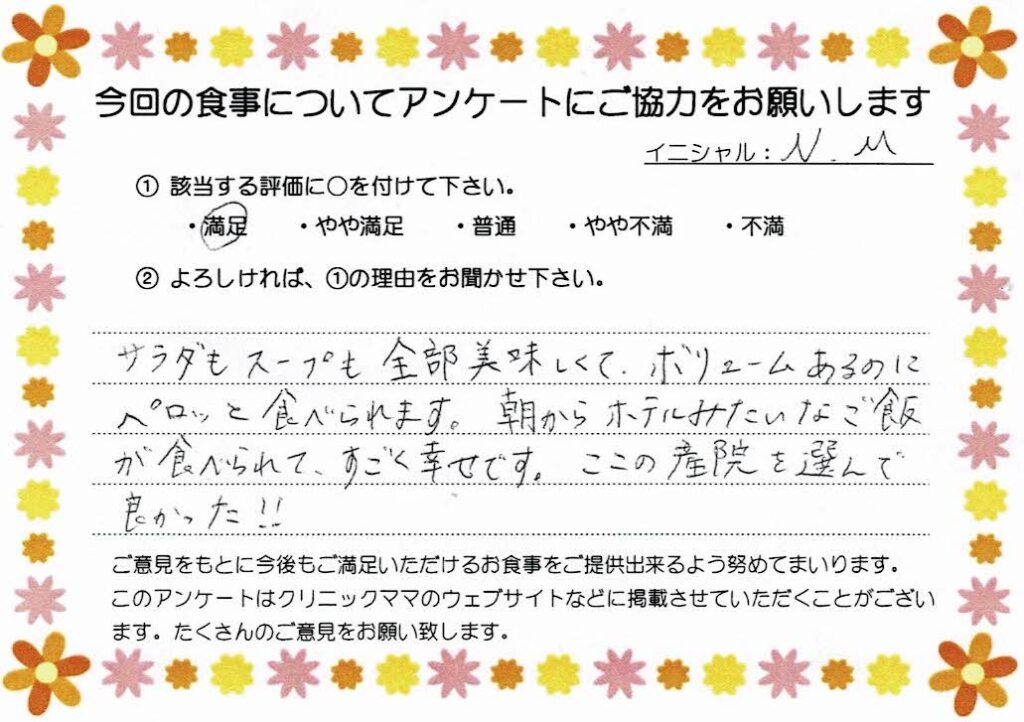 今回の食事についてアンケートにご協力をお願いします
イニシャル：N.M
① 該当する評価に○を付けて下さい。
・満足 ・やや満足 ・普通 ・やや不満 ・不満
② よろしければ、①の理由をお聞かせ下さい。
サラダもスープも全部美味しくて、ボリュームあるのに
ペロッと食べられます。朝からホテルみたいなご飯
が食べられて、すごく幸せです。ここの産院を選んで
良かった!!
ご意見をもとに今後もご満足いただけるお食事をご提供出来るよう努めてまいります。
このアンケートはクリニックママのウェブサイトなどに掲載させていただくことがござい
ます。たくさんのご意見をお願い致します。